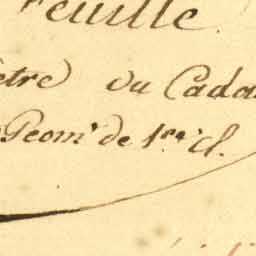 Feuille.
ètre du Cada
Géom. de 1re cl.